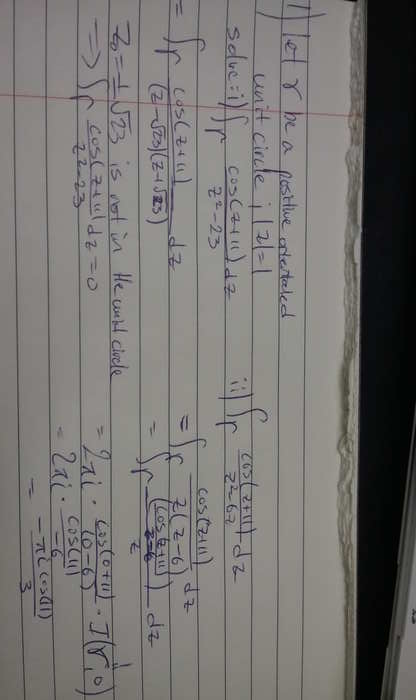 1) let γ be a positive orientaded
unit circle, |z|=1
solve: i) ∫γ cos(z+11)/(z²-23) dz
= ∫γ cos(z+11)/((z-√23)(z+√23)) dz
z₀ = ±√23 is not in the unit circle
=> ∫γ cos(z+11)/(z²-23) dz = 0
ii) ∫γ cos(z+11)/(z²-6z) dz
= ∫γ cos(z+11)/(z(z-6)) dz
= ∫γ (cos(z+11)/(z-6))/z dz
= 2πi · cos(0+11)/(0-6) · I(γ,0)
= 2πi · cos(11)/-6
= -πi cos(11)/3